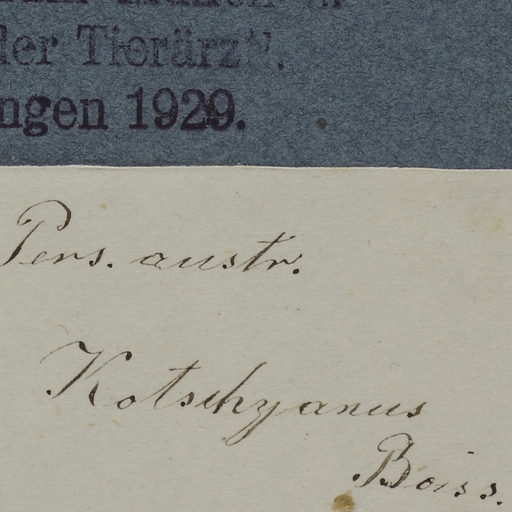 der Tierärztl.
ngen 1929.
Pers. austr.
Kotschyanus
Boiss.